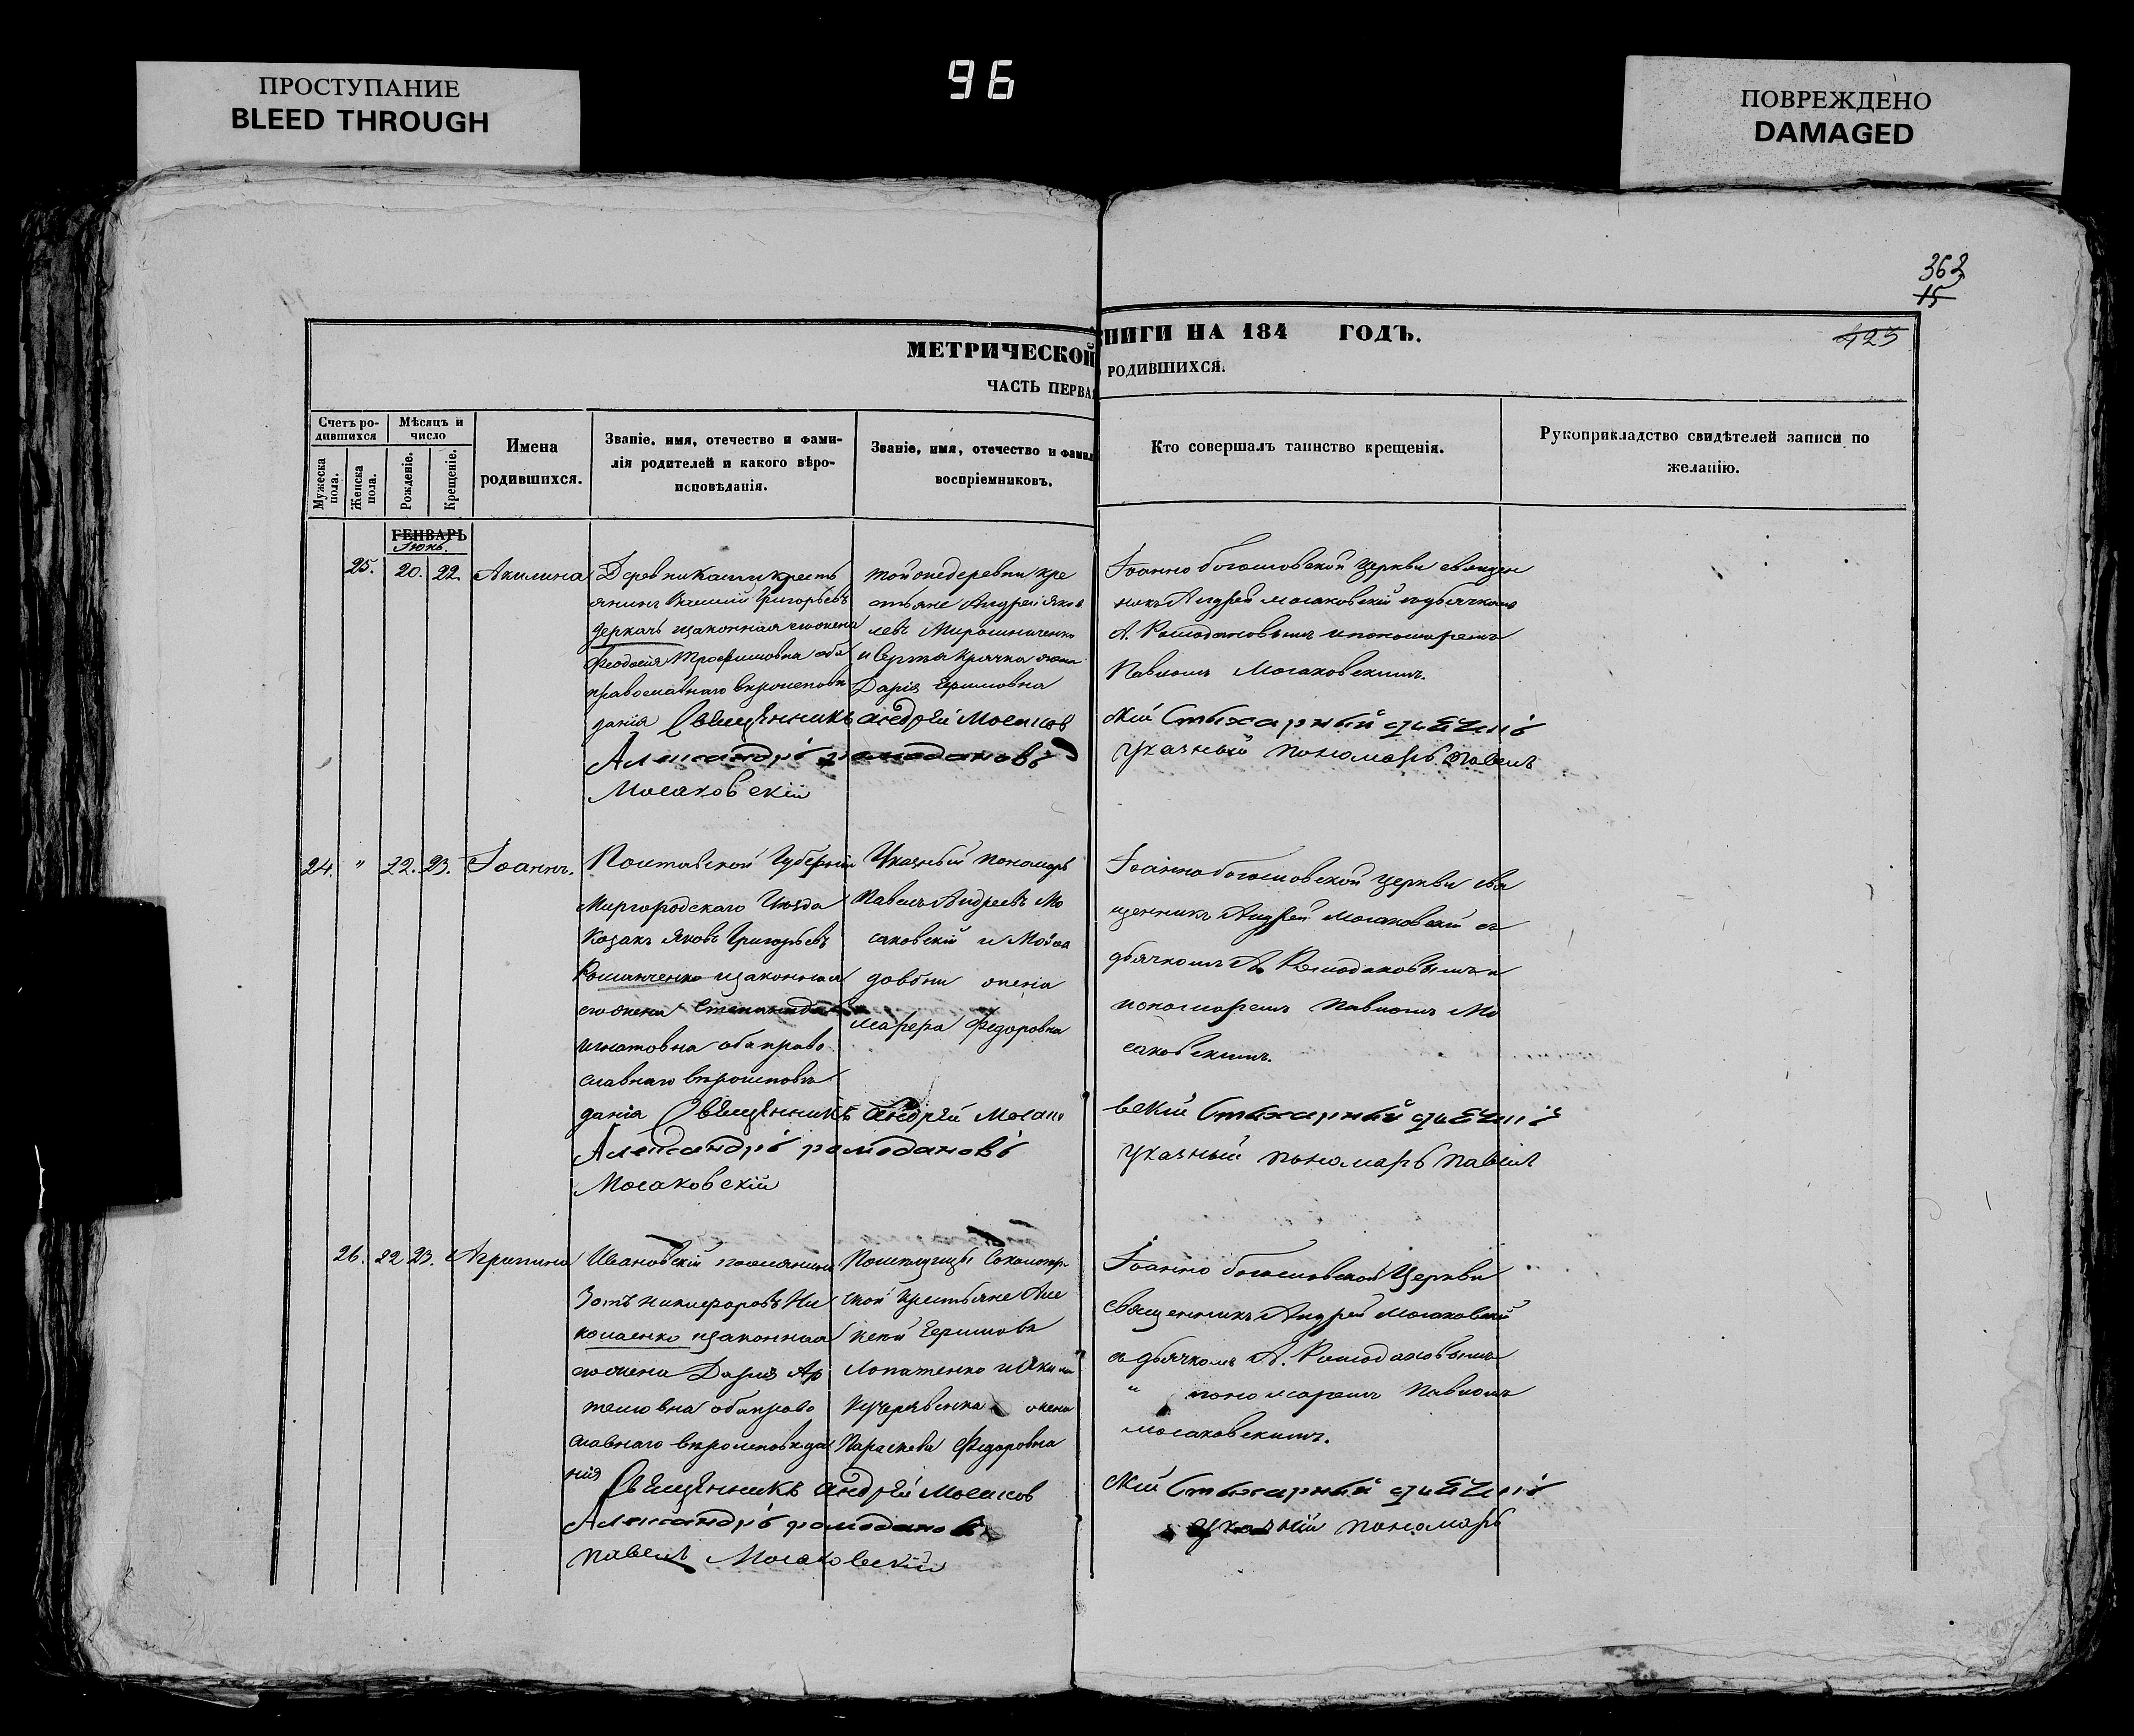 ПРОСТУПАНИЕ
BLEED THROUGH
96
ПОВРЕЖДЕНО
DAMAGED
363
15
423
МЕТРИЧЕСКОЙ КНИГИ НА 184 ГОДЪ.
ЧАСТЬ ПЕРВАЯ РОДИВШИХСЯ.
Счетъ ро-
дившихся
Мужеска
пола.
Женска
пола.
Мѣсяцъ и
число
Рожденіе.
Крещеніе.
Имена
родившихся.
Званіе, имя, отечество и фами-
лія родителей и какого вѣро-
исповѣданія.
Званіе, имя, отечество и фамил
воспріемниковъ.
Кто совершалъ таинство крещенія.
Рукоприкладство свидѣтелей записи по
желанію.
ГЕНВАРЬ
Іюнь.
25. 20. 22. Акилина
Деревни крестъ
янинъ Григорьевъ
Деркачъ изаконная егожена
Феодосія Трофимовна оба
православнаго вѣроисповѣ
данія Священникъ Андрей Мосаков
Александръ Ромодановъ
Мосаковскій
тойжедеревни кре
стьяне Андрей Яков
левъ Мирошниченко
и жена
Дарія Ефимовна
Іоанно богословской церкви священ
никъ Андрей Мосаковскій здьячкомъ
А. Ромодановымъ ипономаремъ
Павломъ Мосаковскимъ.
скій Стихарный дьячокъ
указный пономарь Павелъ
24. " 22. 23. Іоаннъ.
Полтавской Губерніи
Миргородскаго Уѣзда
Козакъ Яковъ Григорьевъ
Романченко изаконная
егожена Степанида
Игнатовна обаправо
славнаго вѣроисповѣ
данія Священникъ Андрей Мосако
Александръ Ромодановъ
Мосаковскій
Указный пономарь
Павелъ Андреевъ Мо
саковскій и
жена
Федоровна
Іоаннобогословской церкви свя
щенникъ Андрей Мосаковскій съ
дьячкомъ А. Ромодановымъ и
пономаремъ Павломъ Мо
саковскимъ.
вскій Стихарный дьячокъ
указный пономарь Павелъ
26. 22 23. Агрипина
Ивановскій поселянинъ
Зотъ Никифоровъ Ни
колаенко изаконная
егожена Дарія Ар
темовна обаправо
славнаго вѣроисповѣда
нія Священникъ Андрей Мосаков
Александръ Ромодановъ
Павелъ Мосаковскій
крестьяне Але
ксѣй Ефимовъ
Лопатенко
Кучерявенка жена
Параскева Федоровна
Іоанно богословской Церкви
священникъ Андрей Мосаковскій
съ дьячкомъ А. Ромодановымъ
" пономаремъ Павломъ
Мосаковскимъ.
скій Стихарный дьячокъ
указній пономарь